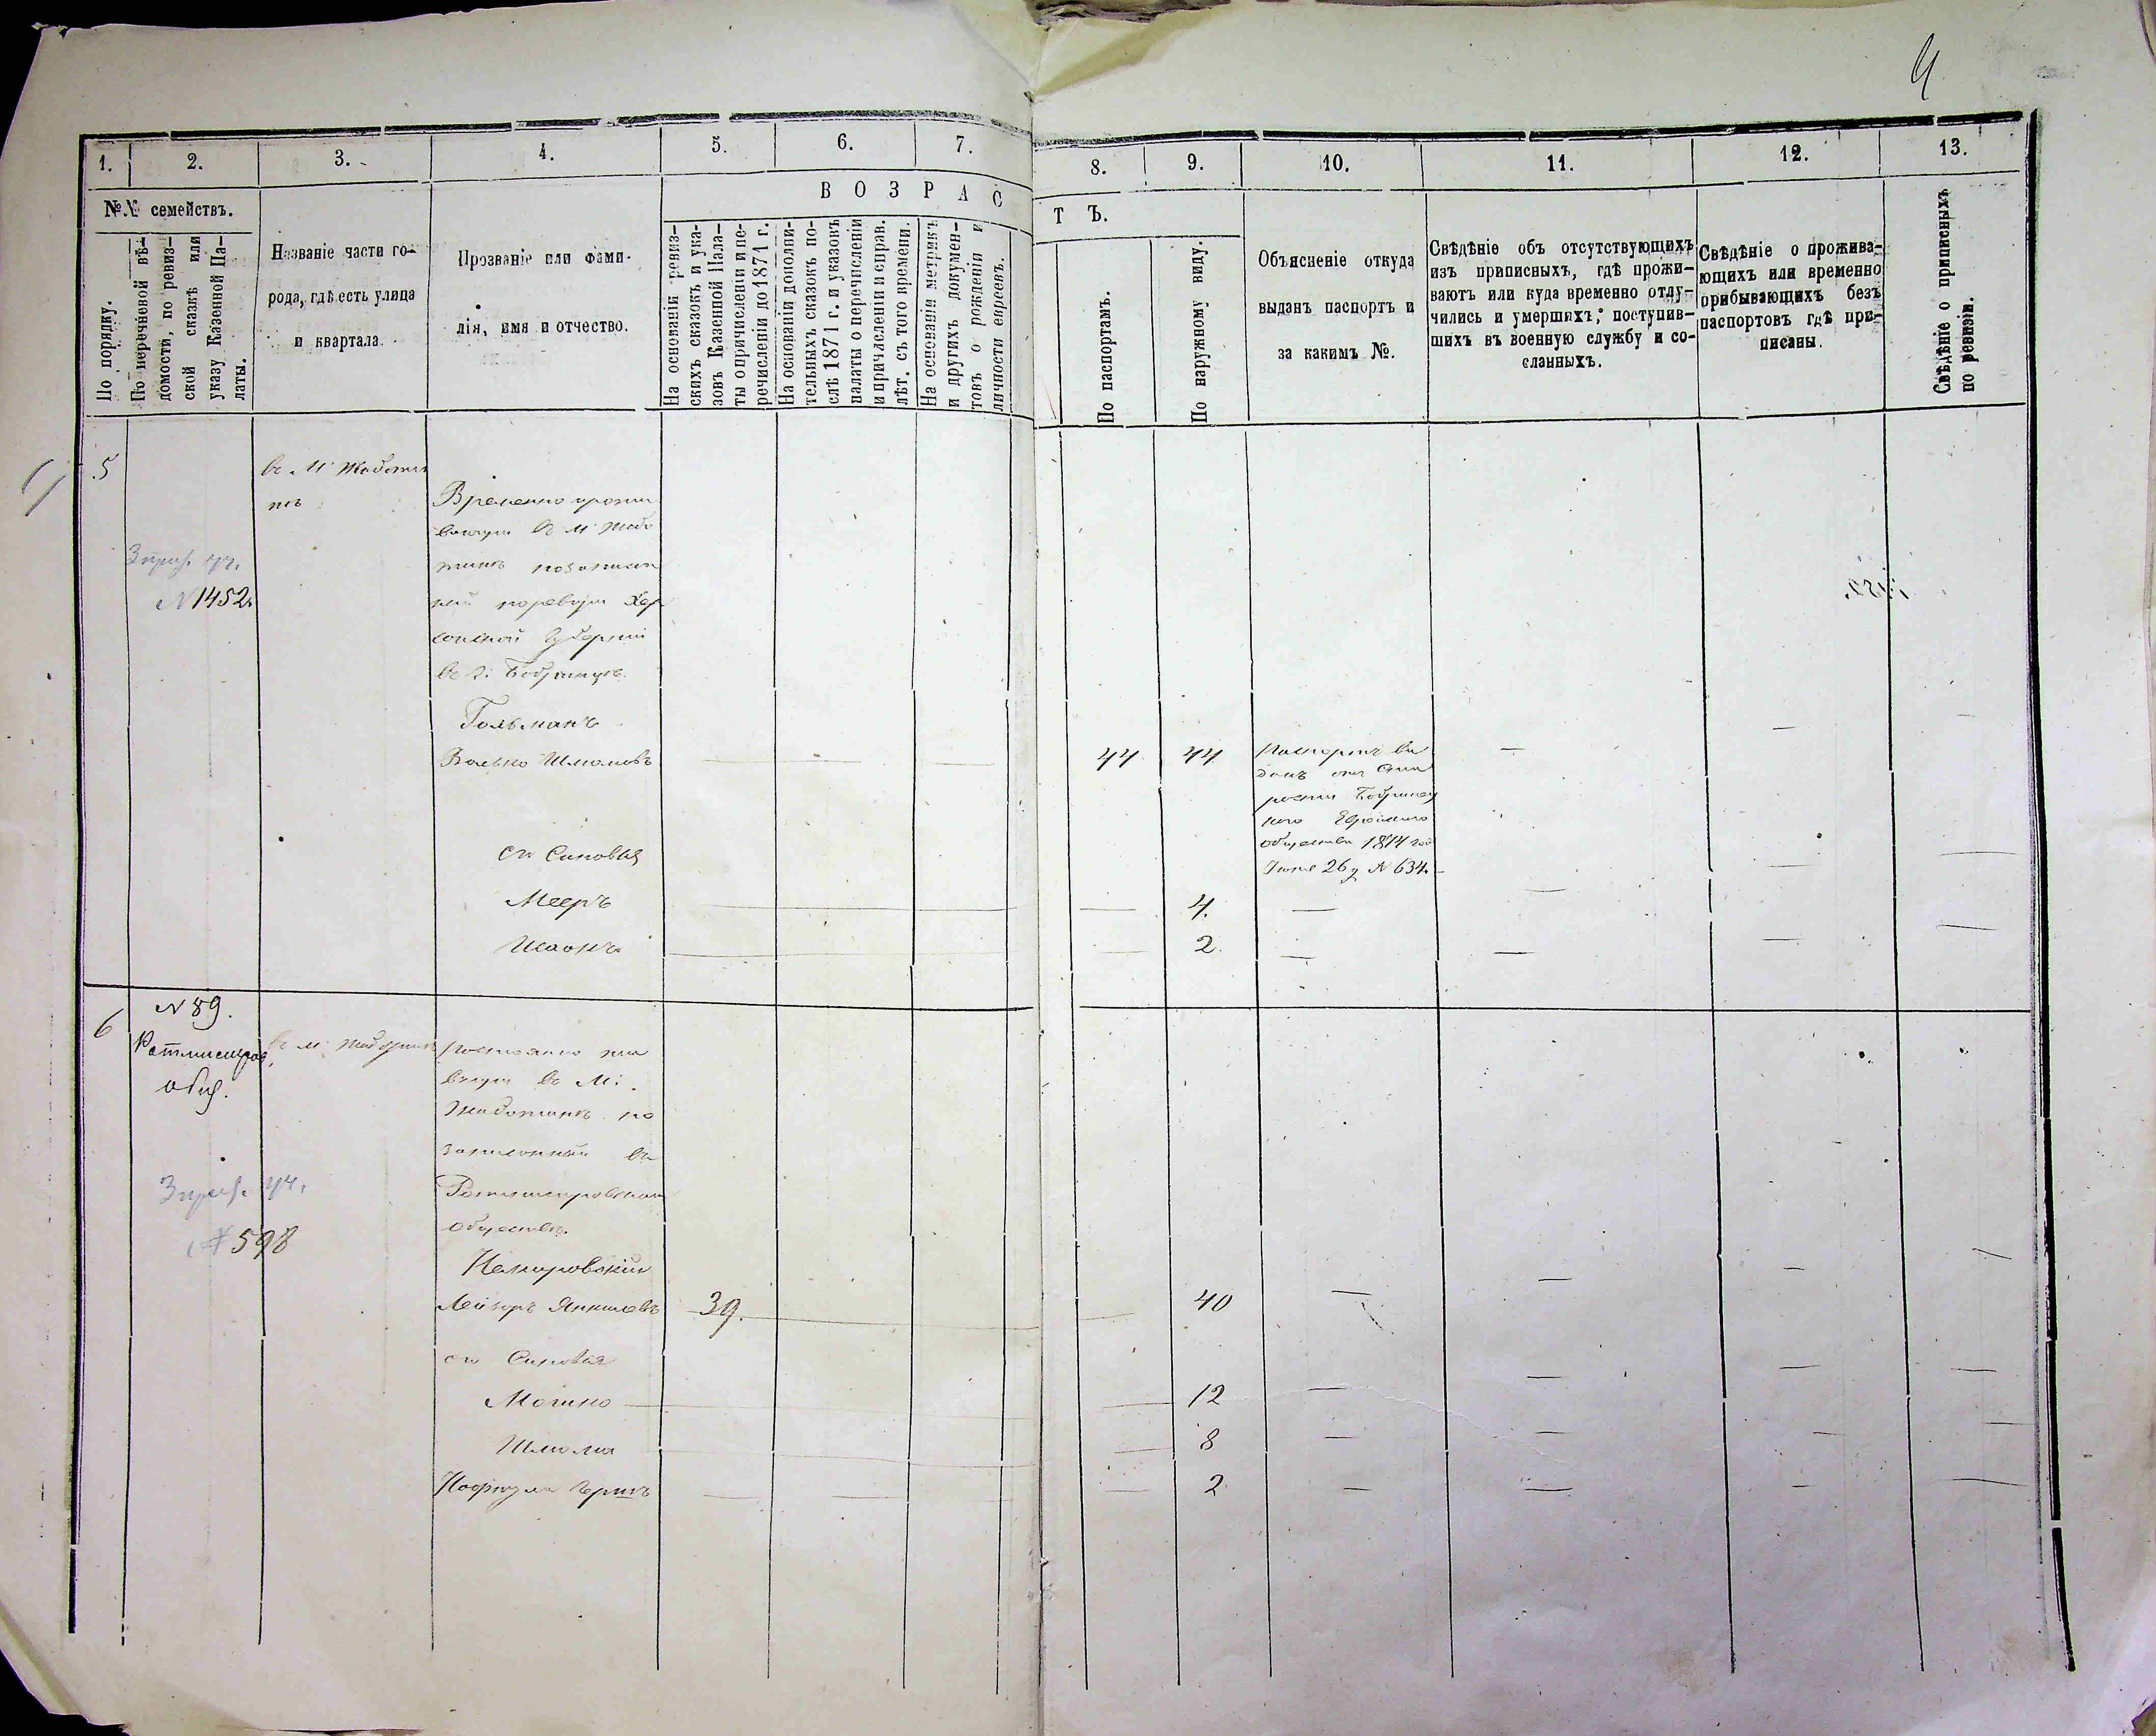 4
1.
2.
3.
4.
5.
6.
7.
8.
9.
10.
11.
12.
13.
№№ семействъ.
По порядку.
По перечневой вѣ-
домости, по ревиз-
ской сказкѣ или
указу Казенной Па-
латы.
Названіе части го-
рода, гдѣ есть улица
и квартала.
Прозваніе или фами-
лія, имя и отчество.
ВОЗРАС
ТЪ.
На основаніи ревиз-
скихъ сказокъ и ука-
зовъ Казенной Пала-
ты о причисленіи и пе-
речисленіи до 1871 г.
На основаніи дополни-
тельныхъ сказокъ по-
слѣ 1871 г. и указовъ
палаты о перечисленіи
и причисленіи и справ.
лѣт. съ того времени.
На основаніи метрикъ
и другихъ докумен-
товъ о рожденіи и
личности евреевъ.
По паспортамъ.
По наружному виду.
Объясненіе откуда
выданъ паспортъ и
за какимъ №.
Свѣдѣніе объ отсутствующихъ
изъ приписныхъ, гдѣ прожи-
ваютъ или куда временно отлу-
чились и умершихъ; поступив-
шихъ въ военную службу и со-
сланныхъ.
Свѣдѣніе о прожива-
ющихъ или временно
прибывающихъ безъ
паспортовъ гдѣ при-
писаны.
Свѣдѣніе о приписныхъ
по ревизіи.
5
в М. Жаботин
тѣ
3 приз. уч.
№ 1452.
Временно прожи
вающи в М. Жабо
тинѣ позаписан
ный поревизи Хер
сонской Губерніи
в г. Бобринцѣ.
Гольманъ
Волько Шлиомовъ
44
44
Паспортъ вы
данъ от Ста
росты Бобринец
каго Еврейского
общества 1874 год
Июня 26 д № 634.
его Сыновья
Мееръ
4.
Шаонъ
2.
6
№ 89.
Ратмистров
общ.
3 приз. уч.
№ 598
в м. Жаботинѣ
Постоянно жи
вущи в М.
Жаботинѣ по
записонный въ
Ратмистровском
обществѣ.
Немировскій
Лейзоръ Янкиловъ
39.
40
его Сыновья
Мошко
12
Шлиома
8
Герш
2